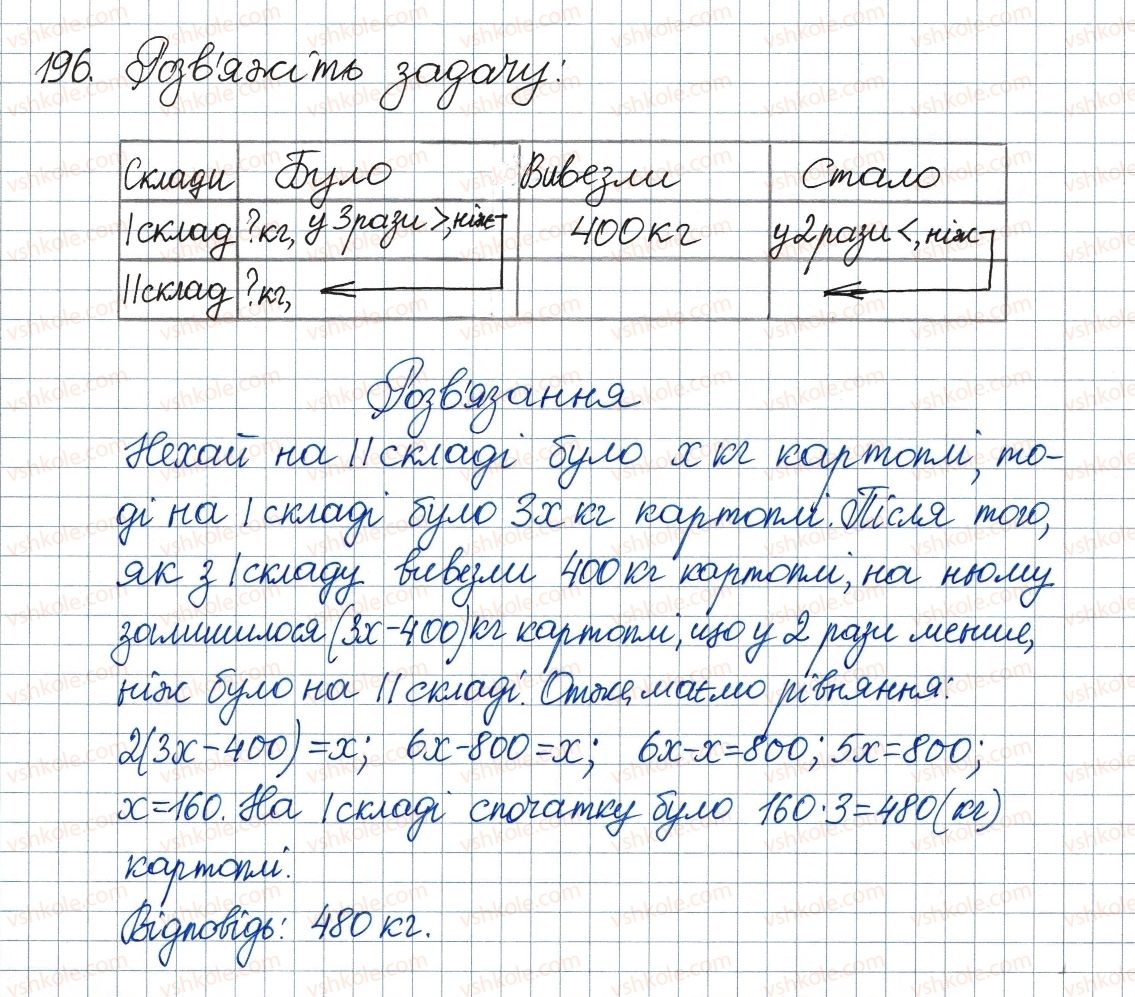 196. Розв'яжіть задачу:
Склади Було Вивезли Стало
I склад ?кг, у 3 рази >, ніж 400 кг у 2 рази <, ніж
II склад ?кг,
Розв'язання
Нехай на II складі було x кг картоплі, то-
ді на I складі було 3x кг картоплі. Після того,
як з I складу вивезли 400 кг картоплі, на ньому
залишилося (3x-400) кг картоплі, що у 2 рази менше,
ніж було на II складі. Отже, маємо рівняння:
2(3x-400)=x; 6x-800=x; 6x-x=800; 5x=800;
x=160. На I складі спочатку було 160·3=480 (кг)
картоплі.
Відповідь: 480 кг.